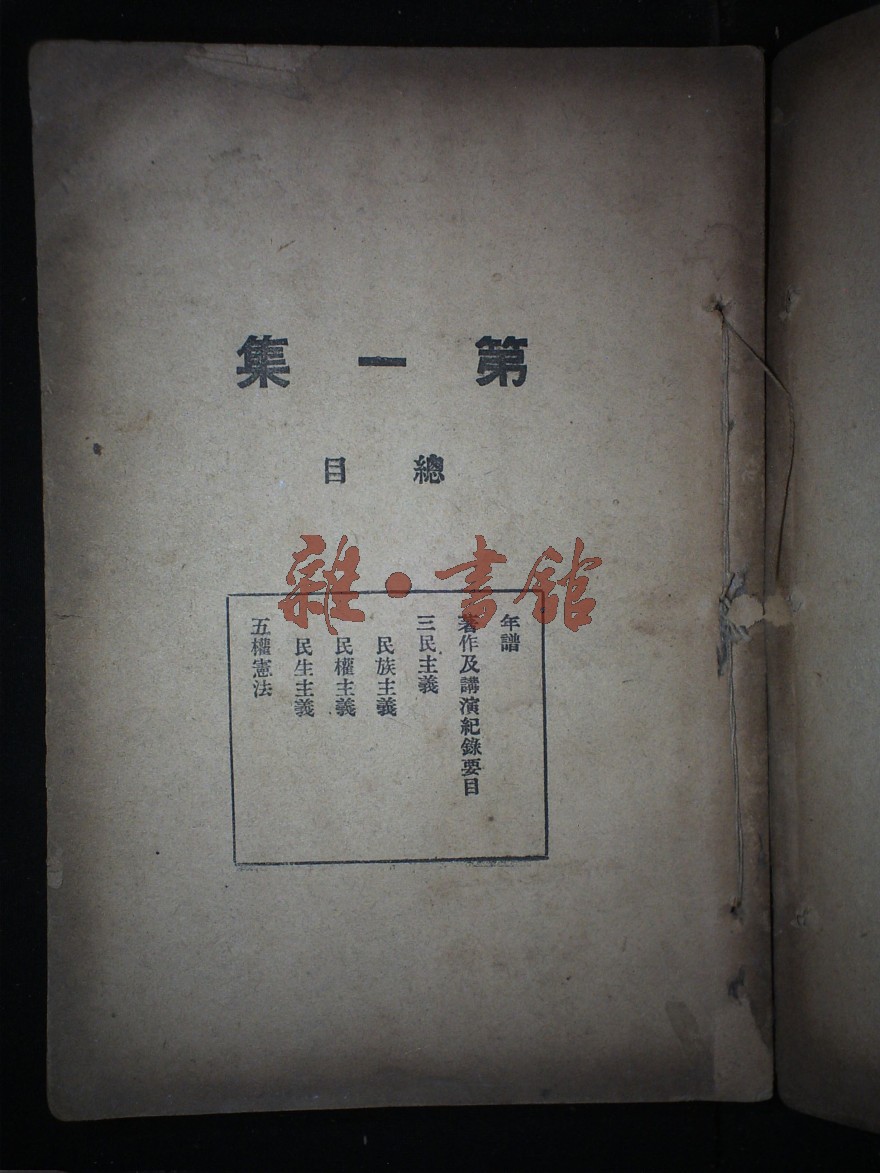 第一集
總目
雜·書館
年譜
著作及講演紀錄要目
三民主義
民族主義
民權主義
民生主義
五權憲法